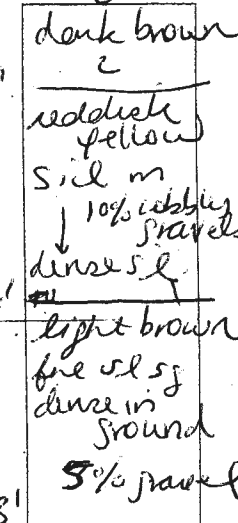 dark brown
2
reddish
yellow
sicl m
10% cobbley
gravels
dense sl
light brown
fine sl sg
dense in
ground
5% gravel
8'